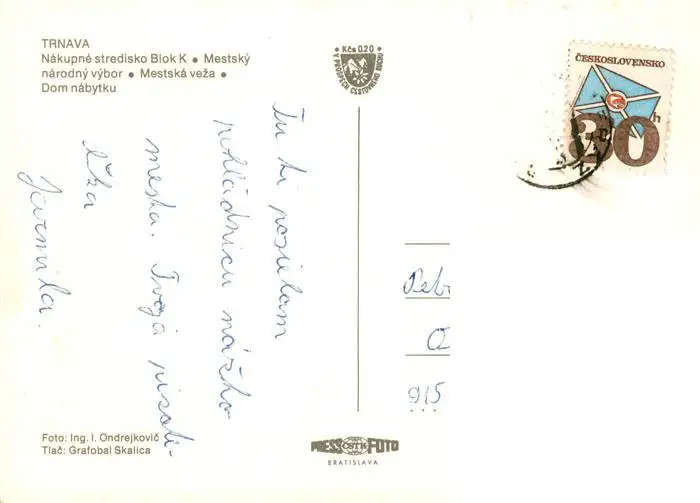 TRNAVA
Nákupné stredisko Blok K ● Mestský
národný výbor ● Mestská veža ●
Dom nábytku
• Kčs 0,20 •
V PROSPECH CESTOVNÉHO RUCHU
ČESKOSLOVENSKO
80h
Tu ti posielam
pohladnicu nášho
mesta. Tvoja pisate-
lka
Jarmila.
Petr
O
915
Foto: Ing. I. Ondrejkovič
Tlač: Grafobal Skalica
PRESS ČSTK FOTO
BRATISLAVA